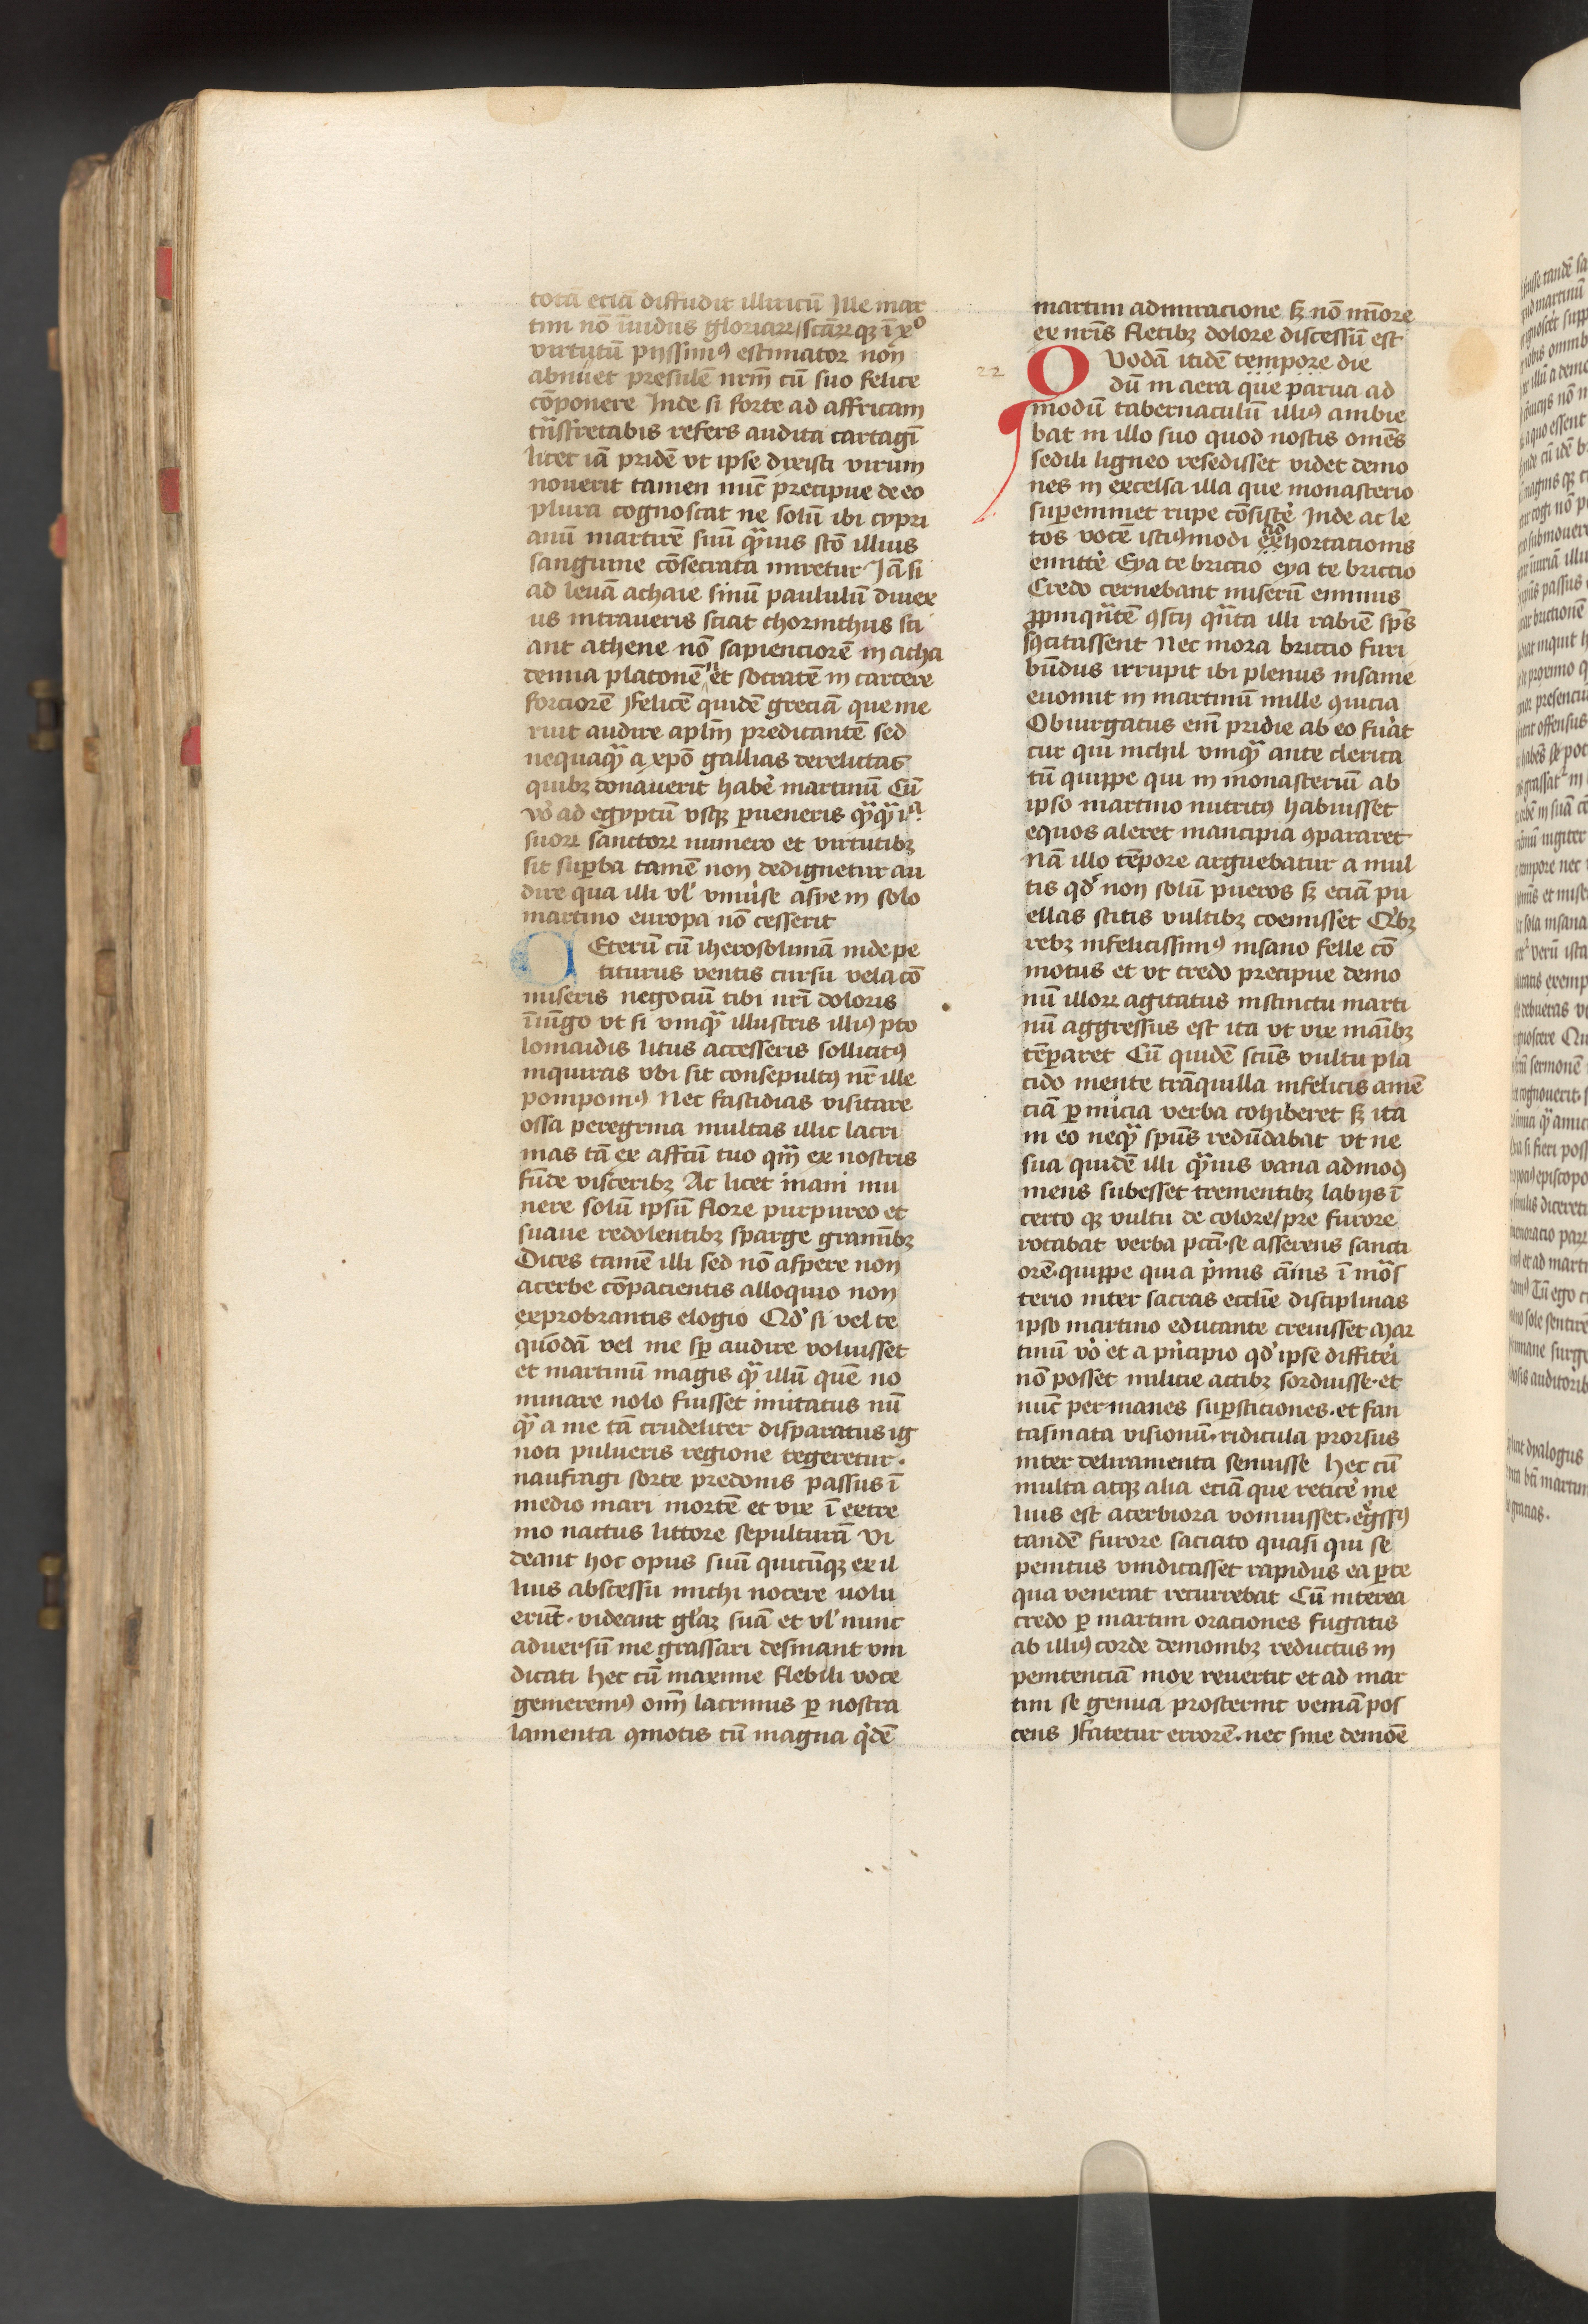 totā eciā diffudit illiricū Ille mar
tini nō īuidus gloriaꝝ / scāꝝ qꝫ ī xͦ
virtutū pijssimꝰ estimator non
abnuet presulē nrm̄ cū suo felice
cōponere Inde si forte ad affricam
trāsfretabis refers audita cartagī
licet iā pridē vt ipse dixisti virum
nouerit tamen nūc precipue de eo
plura cognoscat ne solū ibi cypri
anū martirē suū qͣuis scō illius
sanguine cōsecrata miretur Iā si
ad leuā achaie sinū paululū diuex
us intraueris sciat chorinthus sci
ant athene nō sapienciorē in acha
demia platonē n̄ et socratē in carcere
forciorē Felicē quidē greciā que me
ruit audire aplm̄ predicantē sed
nequaqͣ a xpō gallias derelictas
quibꝫ donauerit habe͛ martinū Cū
vo͛ ad egyptū vsqꝫ ꝑueneris qͣqͣ iᵃ
suoꝝ sanctoꝝ numero et virtutibꝫ
sit suꝑba tamē non dedignetur au
dire qua illi vl͛ vniu͛se asye in solo
martino europa nō cesserit
CEterū cū iherosolimā inde pe
titurus ventis cursu vela cō
miseris negociū tibi nrī doloris
īiūgo vt si vmqͣ illustris illiꝰ pto
lomaidis litus accesseris sollicitꝰ
inquiras vbi sit consepultꝰ nr̄ ille
pomponiꝰ Nec fastidias visitare
ossa peregrina multas illic lacri
mas tā ex affctū tuo qm̄ ex nostris
fūde visceribꝫ Ac licet inani mu
nere solū ipsū flore purpureo et
suaue redolentibꝫ sparge gramībꝫ
Dices tamē illi sed nō aspere non
acerbe cōpacientis alloquio non
exprobrantis elogio Qd͛ si vel te
quōdā vel me sꝑ audire voluisset
et martinū magis qͣ illū quē no
minare nolo fuisset imitatus nū
qͣ a me tā crudeliter disparatus ig
noti pulueris regione tegeretur ·
naufragi sorte predonis passus ī
medio mari mortē et vix ī extre
mo nactus littore sepulturā Vi
deant hoc opus suū quicūqꝫ ex il
lius abscessu michi nocere uolu
erūt · videant gl͛aꝫ suā et vl͛ nunc
aduersū me grassari desinant vin
dicati Hec cū maxime flebili voce
gemeremꝰ om̄ lacrimis ꝑ nostra
lamenta ꝯmotis cū magna qͥdē
martini admiracione sꝫ nō mīore
ex nrīs fletibꝫ dolore discessū est
22
QVodā itidē tempore die
dū in aera que parua ad
modū tabernaculū illiꝰ ambie
bat in illo suo quod nostis omēs
sedili ligneo resedisset videt demo
nes in excelsa illa que monasterio
suꝑeminet rupe cōsiste͛ Inde ac le
tos vocē istiꝰmodi exhortacionis
ad
emitte͛ Eya te briccio eya te briccio
Credo cernebant miserū eminus
ꝓpinqͣntē ꝯscij qͣnta illi rabiē spūs
sꝯcitassent Nec mora briccio furi
būdus irrupit ibi plenus insanie
euomit in martinū mille ꝯuicia
Obiurgatus enī pridie ab eo fu͛at
cur qui nichil vmqͣ ante clerica
tū quippe qui in monasteriū ab
ipso martino nutritꝰ habuisset
equos aleret mancipia ꝯpararet
Nā illo tēpore arguebatur a mul
tis qd͛ non solū pueros sꝫ eciā pu
ellas scitis vultibꝫ coemisset Qͥbꝫ
rebꝫ infelicissimꝰ insano felle cō
motus et vt credo precipue demo
nū illoꝝ agitatus instinctu marti
nū aggressus est ita vt vix māibꝫ
tēꝑaret Cū quidē scūs vultu pla
cido mente trāquilla infelicis amē
ciā ꝑ micia verba cohiberet sꝫ ita
in eo neqͣ spūs redūdabat vt ne
sua quidē illi qͣuis vana admodꝫ
mens subesset trementibꝫ labijs ī
certo qꝫ vultu de colore / pre furore
rotabat verba pctī · se asserens sancti
orē · quippe qui a pͥmis ānis ī mōs
terio inter sacras ecclīe disciplinas
ipso martino educante creuisset Mar
tinū vo͛ et a pͥncipio qd͛ ipse diffite͛i
nō posset milicie actibꝫ sorduisse · et
nūc per inanes suꝑsticiones · et fan
tasmata visionū · ridicula prorsus
inter deliramenta senuisse Hec cū
multa atqꝫ alia eciā que retice͛ me
lius est acerbiora vomuisset · eg͛ssꝰ
tandē furore saciato quasi qui se
penitus vindicasset rapidus ea ꝑte
qua venerat recurrebat Cū interea
credo ꝑ martini oraciones fugatis
ab illiꝰ corde demonibꝫ reductus in
penitenciā mox reuertit et ad mar
tini se genua prosternit veniā pos
cens Fatetur errorē · nec sine demōe